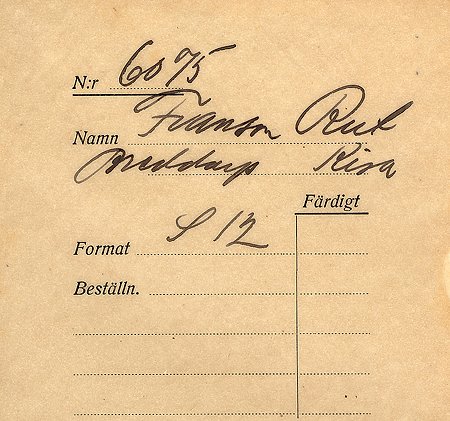 N:r 6075
Namn Franson Rut
Bredstorp Kisa
Färdigt
Format S 12
Beställn.